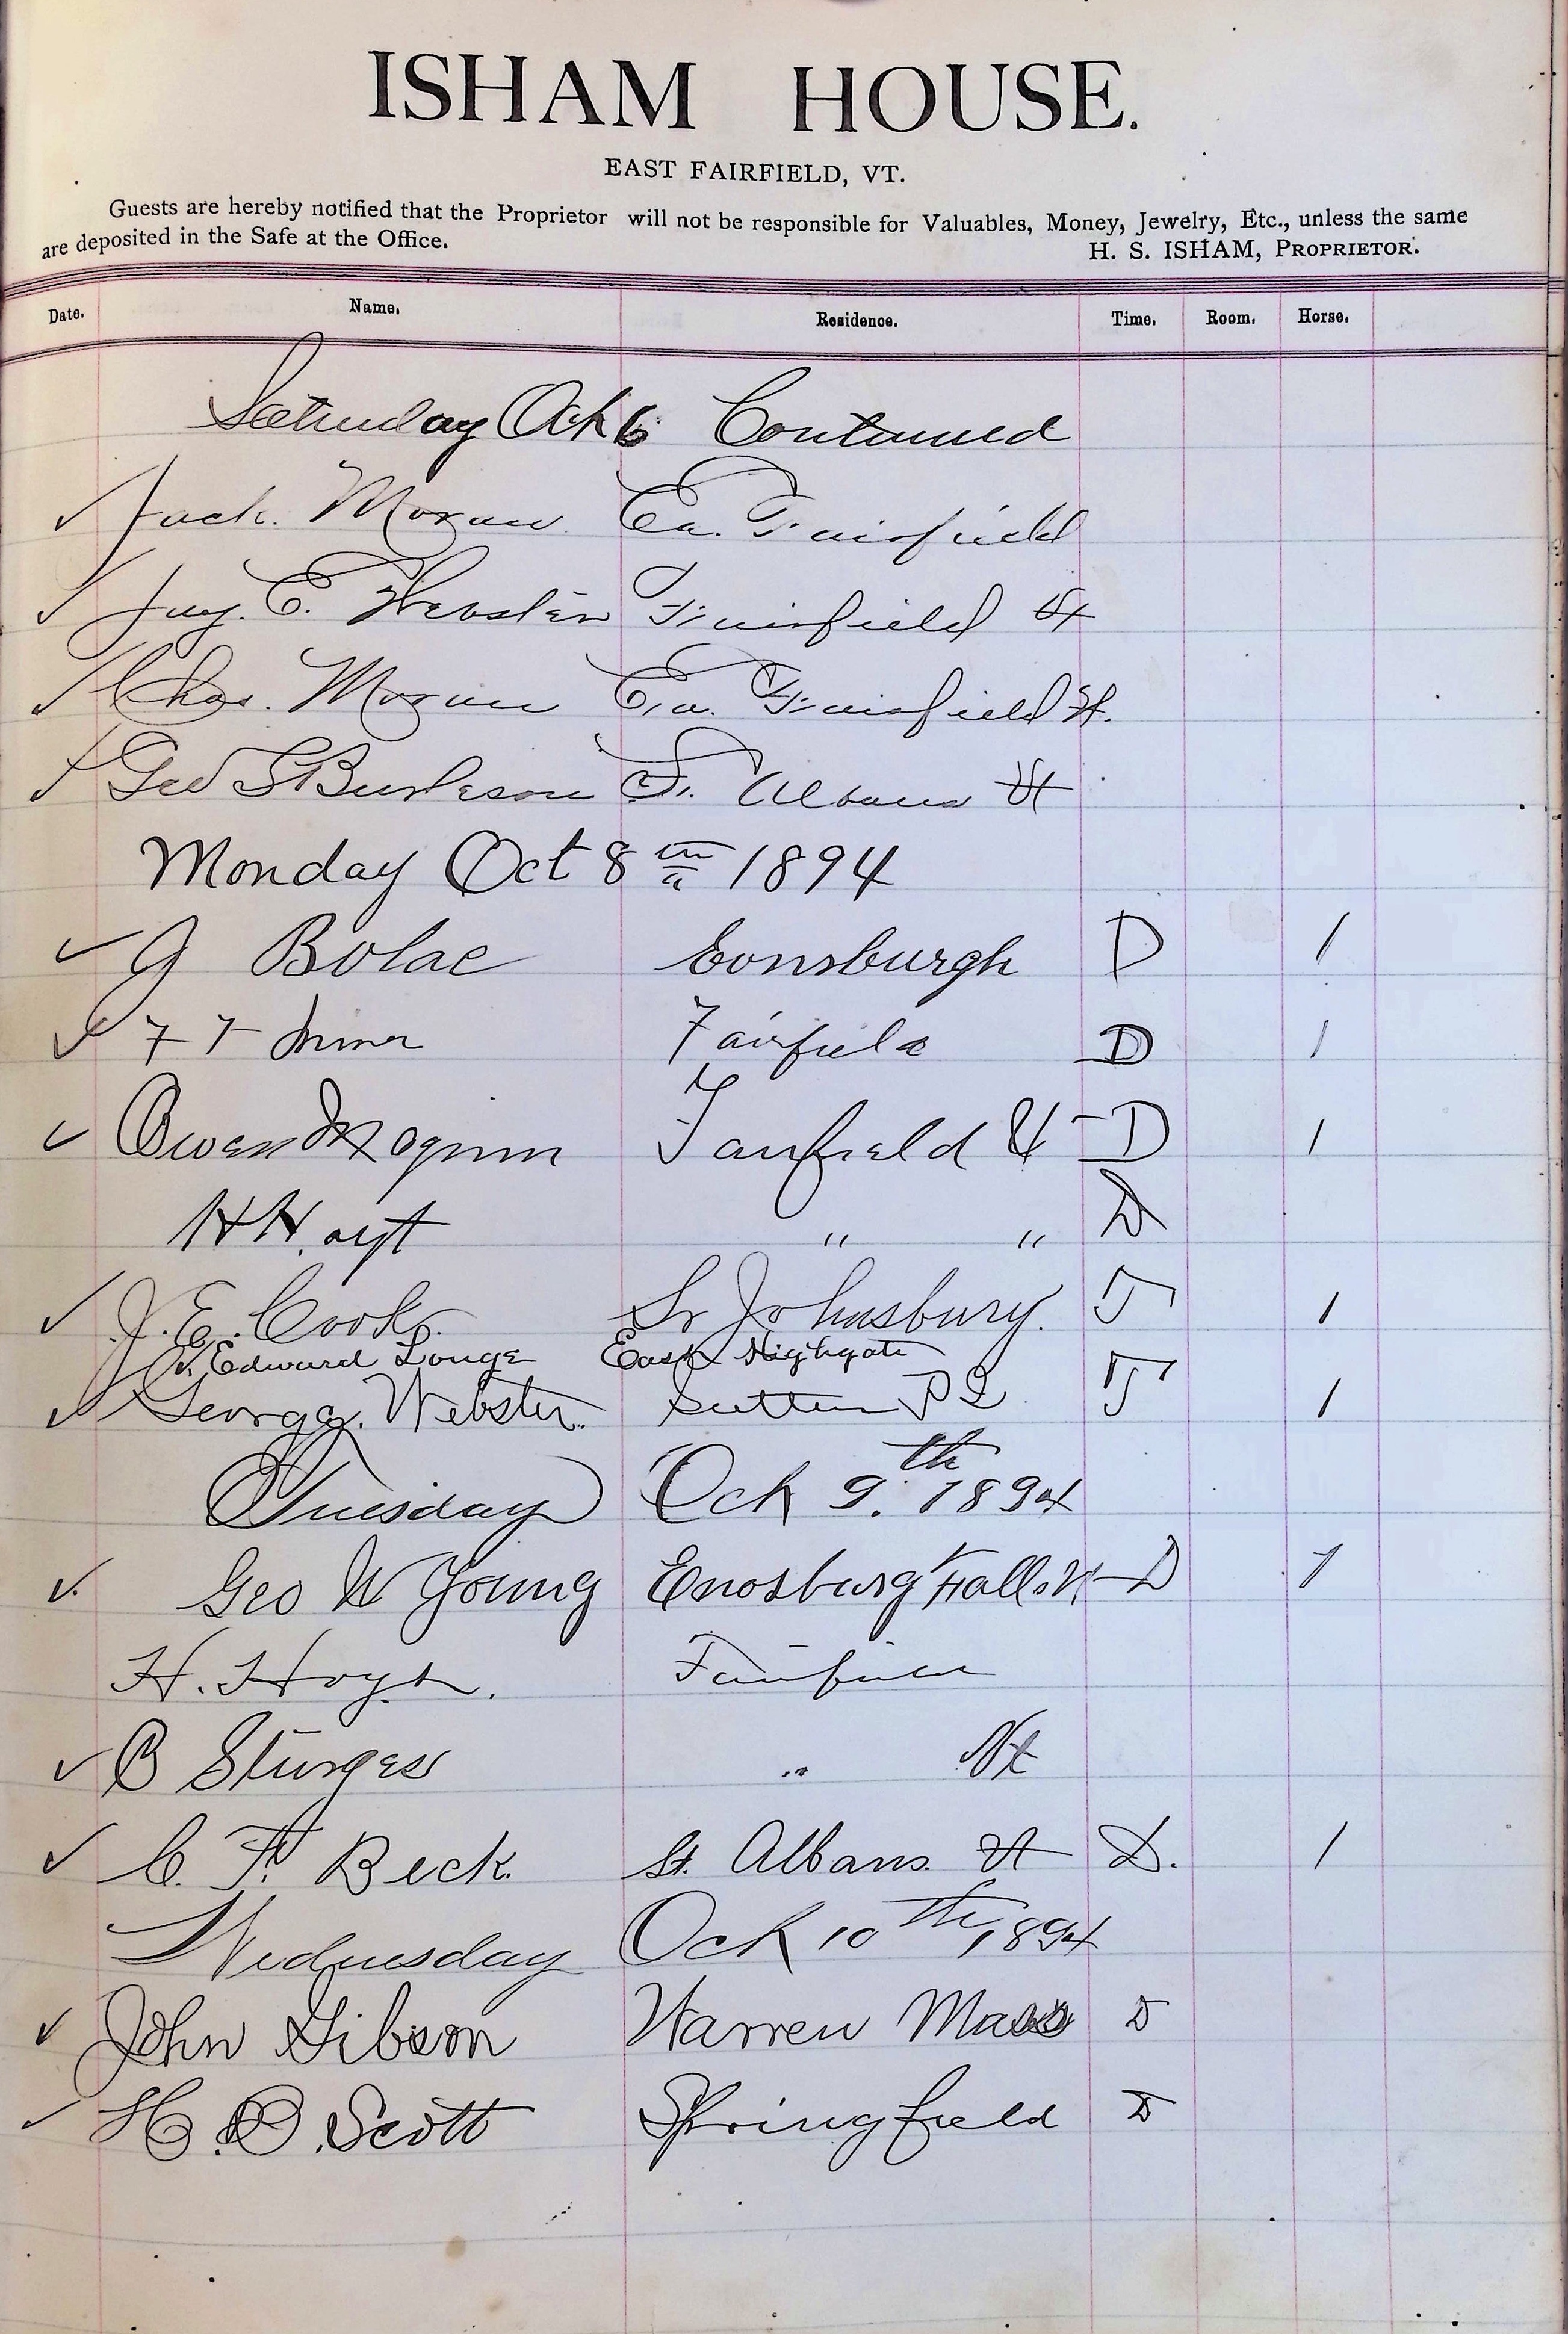 ISHAM HOUSE.
EAST FAIRFIELD, VT.
Guests are hereby notified that the Proprietor will not be responsible for Valuables, Money, Jewelry, Etc., unless the same
are deposited in the Safe at the Office.
H. S. ISHAM, PROPRIETOR.
Date. Name. Residence. Time. Room. Horse.
Saturday Oct 6 Continued
✓ Jack. Moran Ea. Fairfield
✓ Jay. E. Webster Fairfield Vt
✓ Chas. Moran Ea. Fairfield Vt.
✓ Geo S Burleson St. Albans Vt
Monday Oct 8th 1894
✓ J Bolac Eonsburgh D 1
✓ F F Fairfield D 1
✓ Owen Maginn Fairfield Vt D 1
H H. oyt " " D
✓ J. E. Cook St Johnsbury. T 1
Edward Longe East Highgate
✓ George. Webster. Sutton P Q T 1
Tuesday Oct 9th. 1894
✓ Geo W Young Enosburg Falls Vt D 1
H. Hoyt. Fairfield
✓ B Sturges " Vt
✓ C. F. Beck. St. Albans. Vt D. 1
Wednesday Oct 10th 1894
✓ John Gibson Warren Mass D
✓ H. O. Scott Springfield D